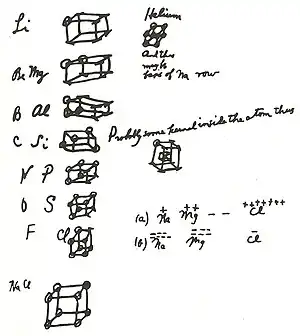 Li
Helium
Be Mg
And this
may be
base of Na row
B Al
C Si
Probably some kernel inside the atom thus
N P
O S
(a) + Na ++ Mg - - +++++++ Cl
F Cl
(b) Na Mg - Cl
NaCl